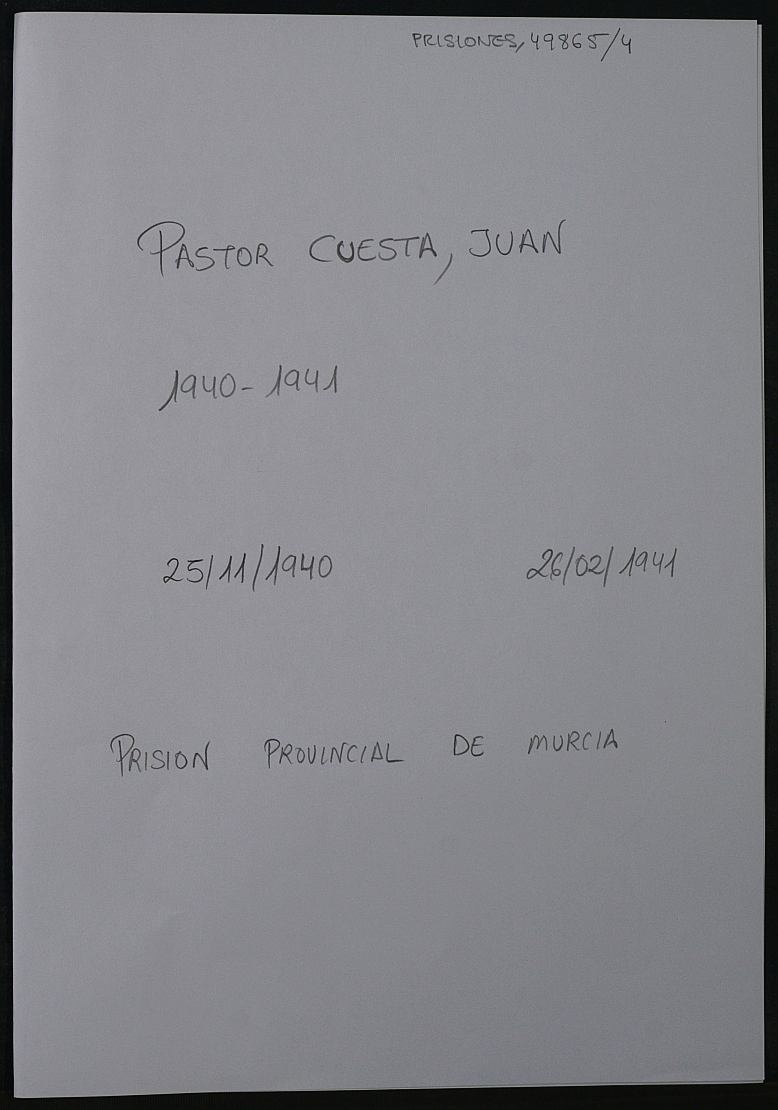 PRISIONES, 49865/4
PASTOR CUESTA, JUAN
1940-1941
25/11/1940 26/02/1941
PRISION PROVINCIAL DE MURCIA